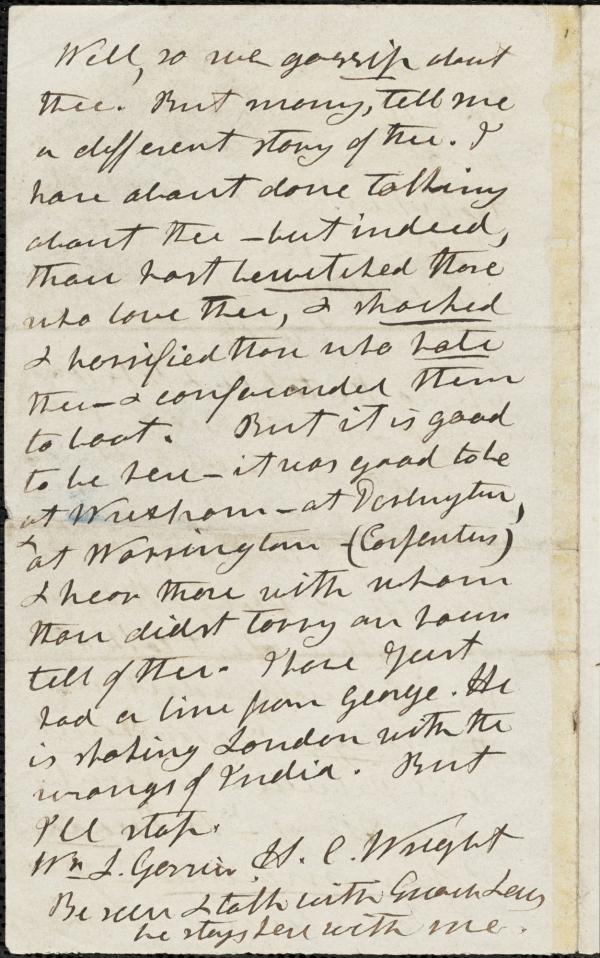 Well, so we gossip about
thee. But many, tell me
a different story of thee. I
have about done talking
about thee – but indeed,
thou hast bewitched those
who love thee, & shocked
& horrified those who hate
thee – & confounded them
to boot. But it is good
to be here – it was good to be
at Wrexham – at Darlington,
& at Warrington – (Carpenters)
& hear those with whom
thou didst tarry an hour
tell of thee. I have just
had a line from George. He
is shaking London with the
wrongs of India. But
I'll stop.
Wm L. Garrison H. C. Wright
Be seen & talk with Enoch Lewis
he stays here with me.